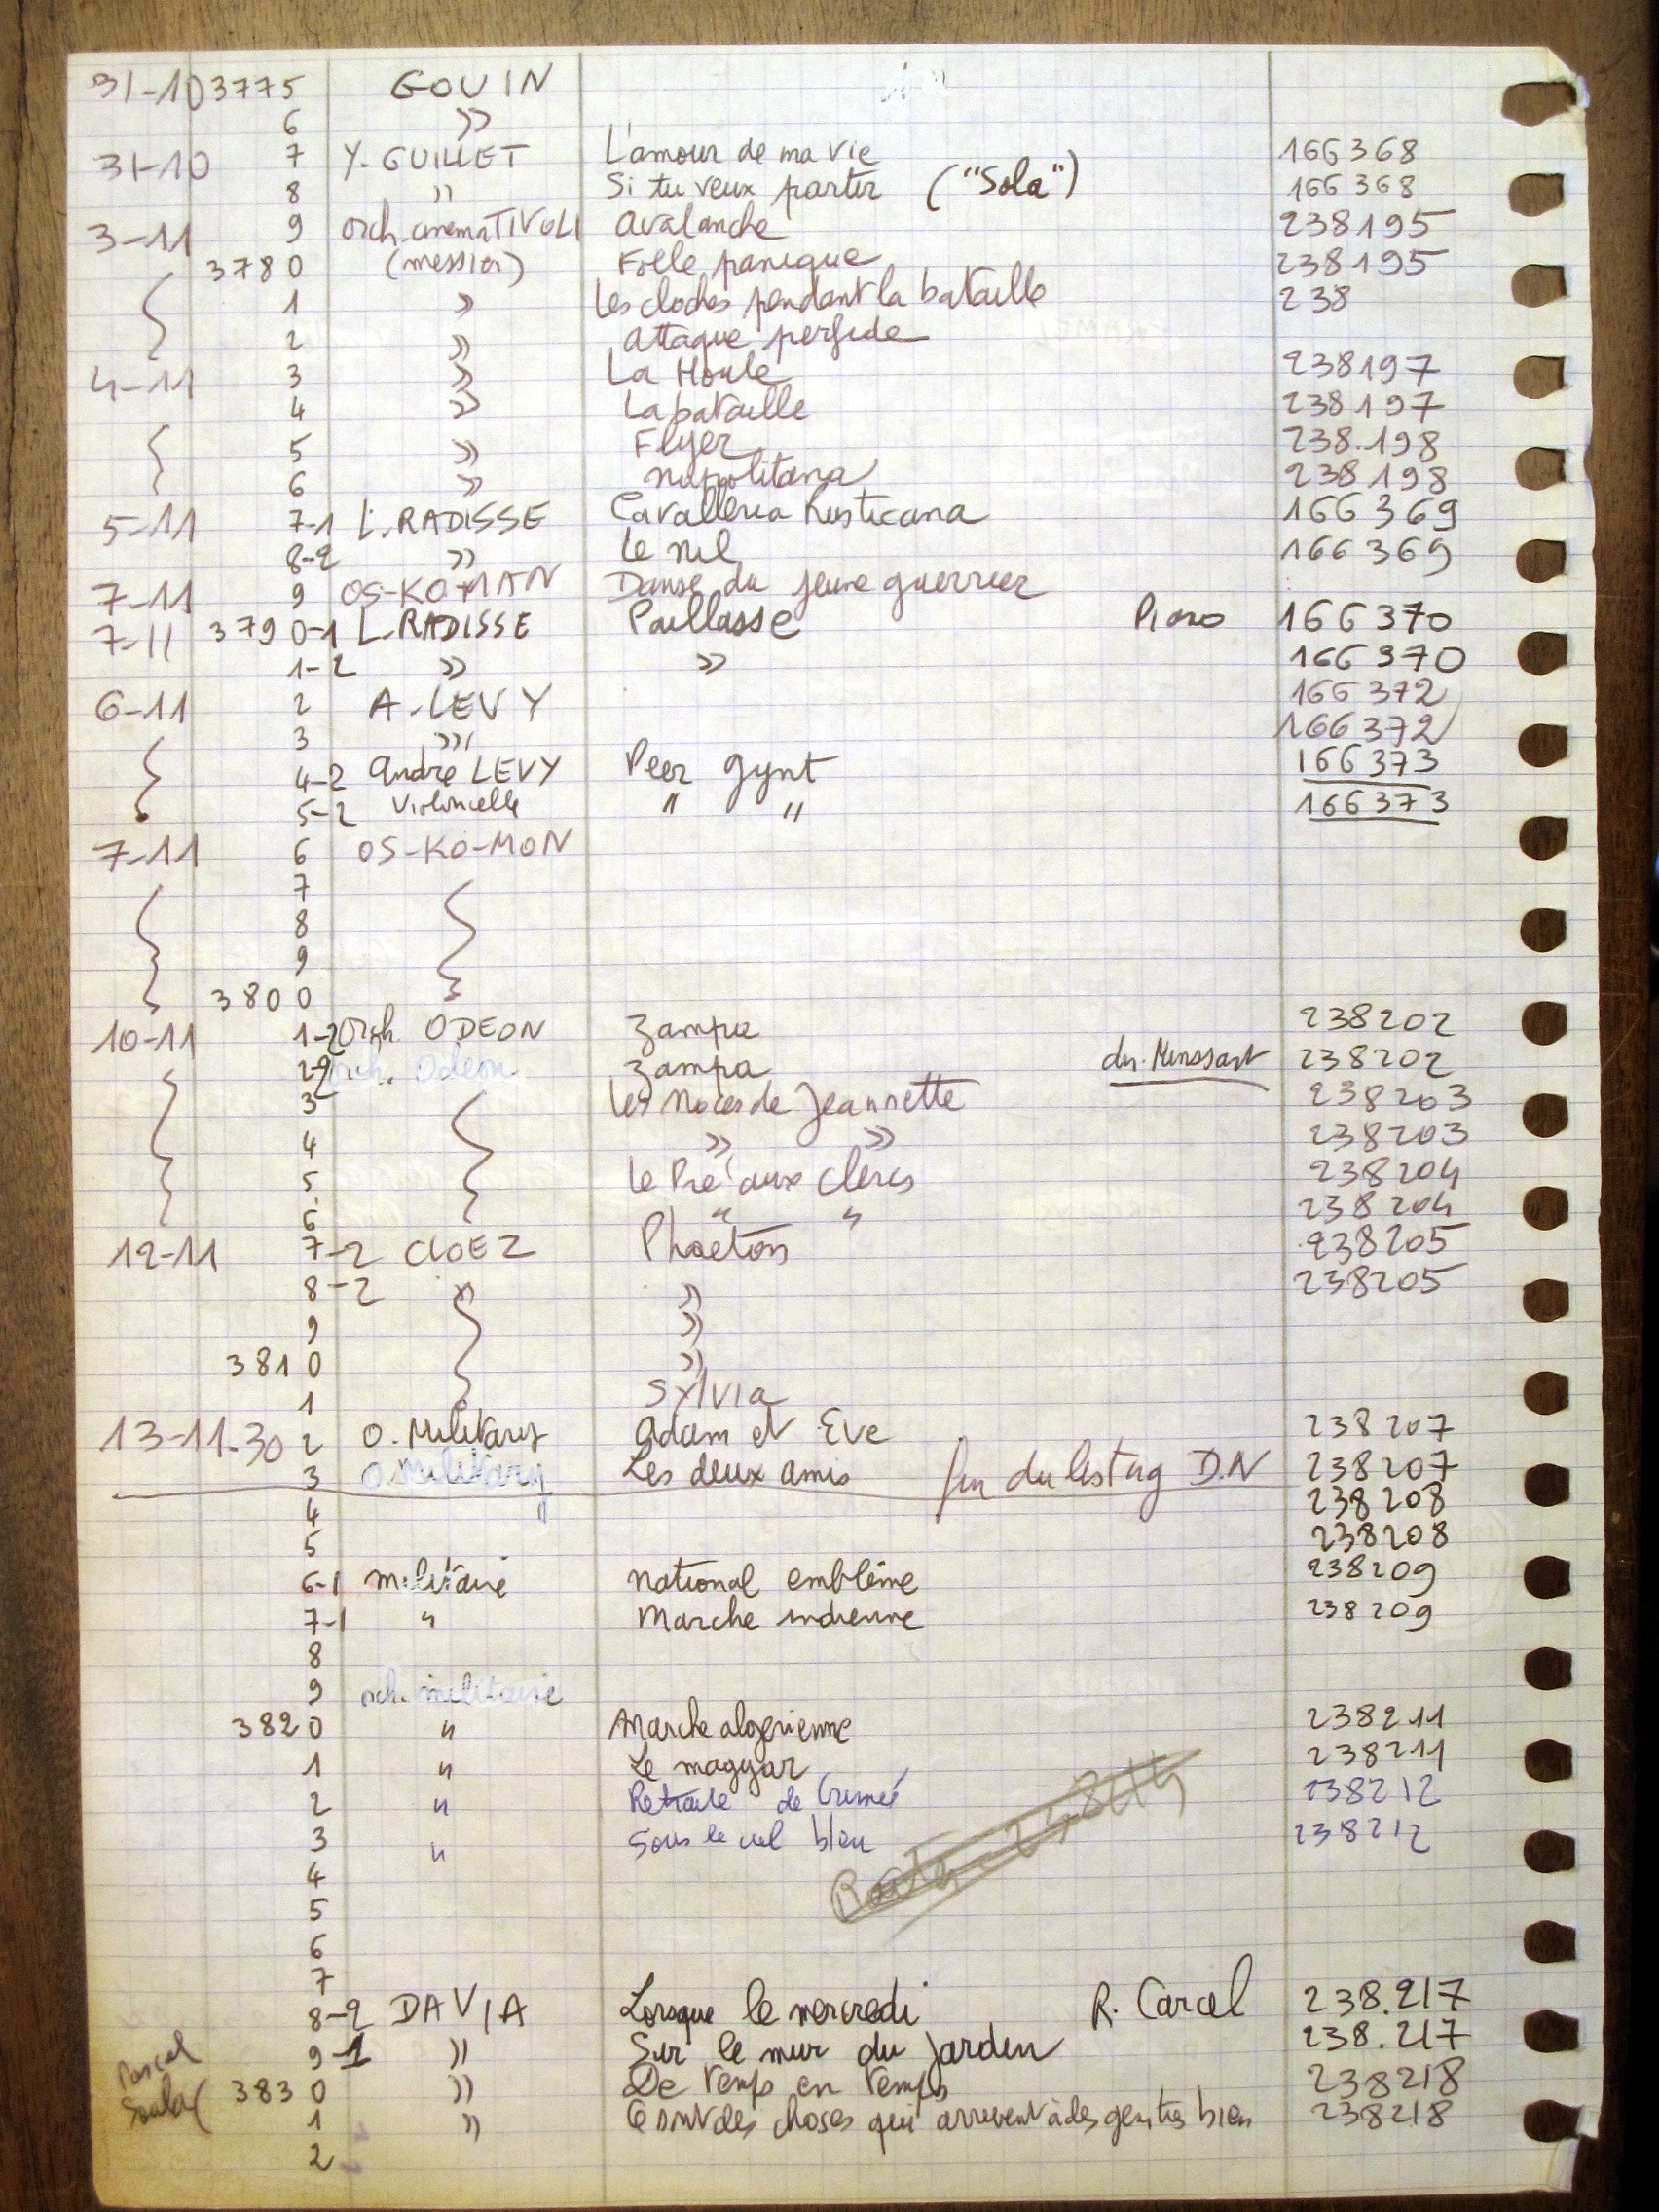 31-10 3775 GOUIN
6 »
31-10 7 Y. GUILLET L'amour de ma vie 166368
8 » Si tu veux partir ("Sola") 166368
3-11 9 Orch. cinema TIVOLI Avalanche 238195
3780 (messier) Folle panique 238195
1 » Les cloches pendant la bataille 238
2 » Attaque perfide
4-11 3 » La Houle 238197
4 » La bataille 238197
5 » Flyer 238.198
6 » Napolitana 238198
5-11 7-1 L. RADISSE Cavalleria Rusticana 166369
8-2 » Le nil 166369
7-11 9 OS-KO-MAN Danse du jeune guerrier
7-11 3790-1 L. RADISSE Paillasse Piano 166370
1-2 » » 166370
6-11 2 A. LEVY 166372
3 » 166372
4-2 André LEVY Peer gynt 166373
5-2 Violoncelle " " 166373
7-11 6 OS-KO-MON
7
8
9
3800
10-11 1-2 Orch. ODEON Zampa 238202
2-2 orch. Odeon Zampa 238202
3 Les Noces de Jeannette 238203
4 » » 238203
5 Le Pré aux clercs 238204
6 " " 238204
12-11 7-2 CLOEZ Phaeton 238205
8-2 » » 238205
9 »
3810 »
1 SYLVIA
13-11-30 2 O. Military Adam et Eve 238207
3 O. Military Les deux amis fin du listing D.N 238207
4 238208
5 238208
6-1 militaire National emblême 238209
7-1 " Marche indienne 238209
8
9 orch. militaire
3820 " Marche algerienne 238211
1 " Le magyar 238211
2 " Retraite de Crimée 238212
3 " Sous le ciel bleu 238212
4
5
6
7
8-2 DAVIA Lorsque le mercredi R. Carcel 238.217
9-1 » Sur le mur du jardin 238.217
Pascal
3830 » De temps en temps 238218
1 » Ce sont des choses qui arrivent à des gens très bien 238218
2